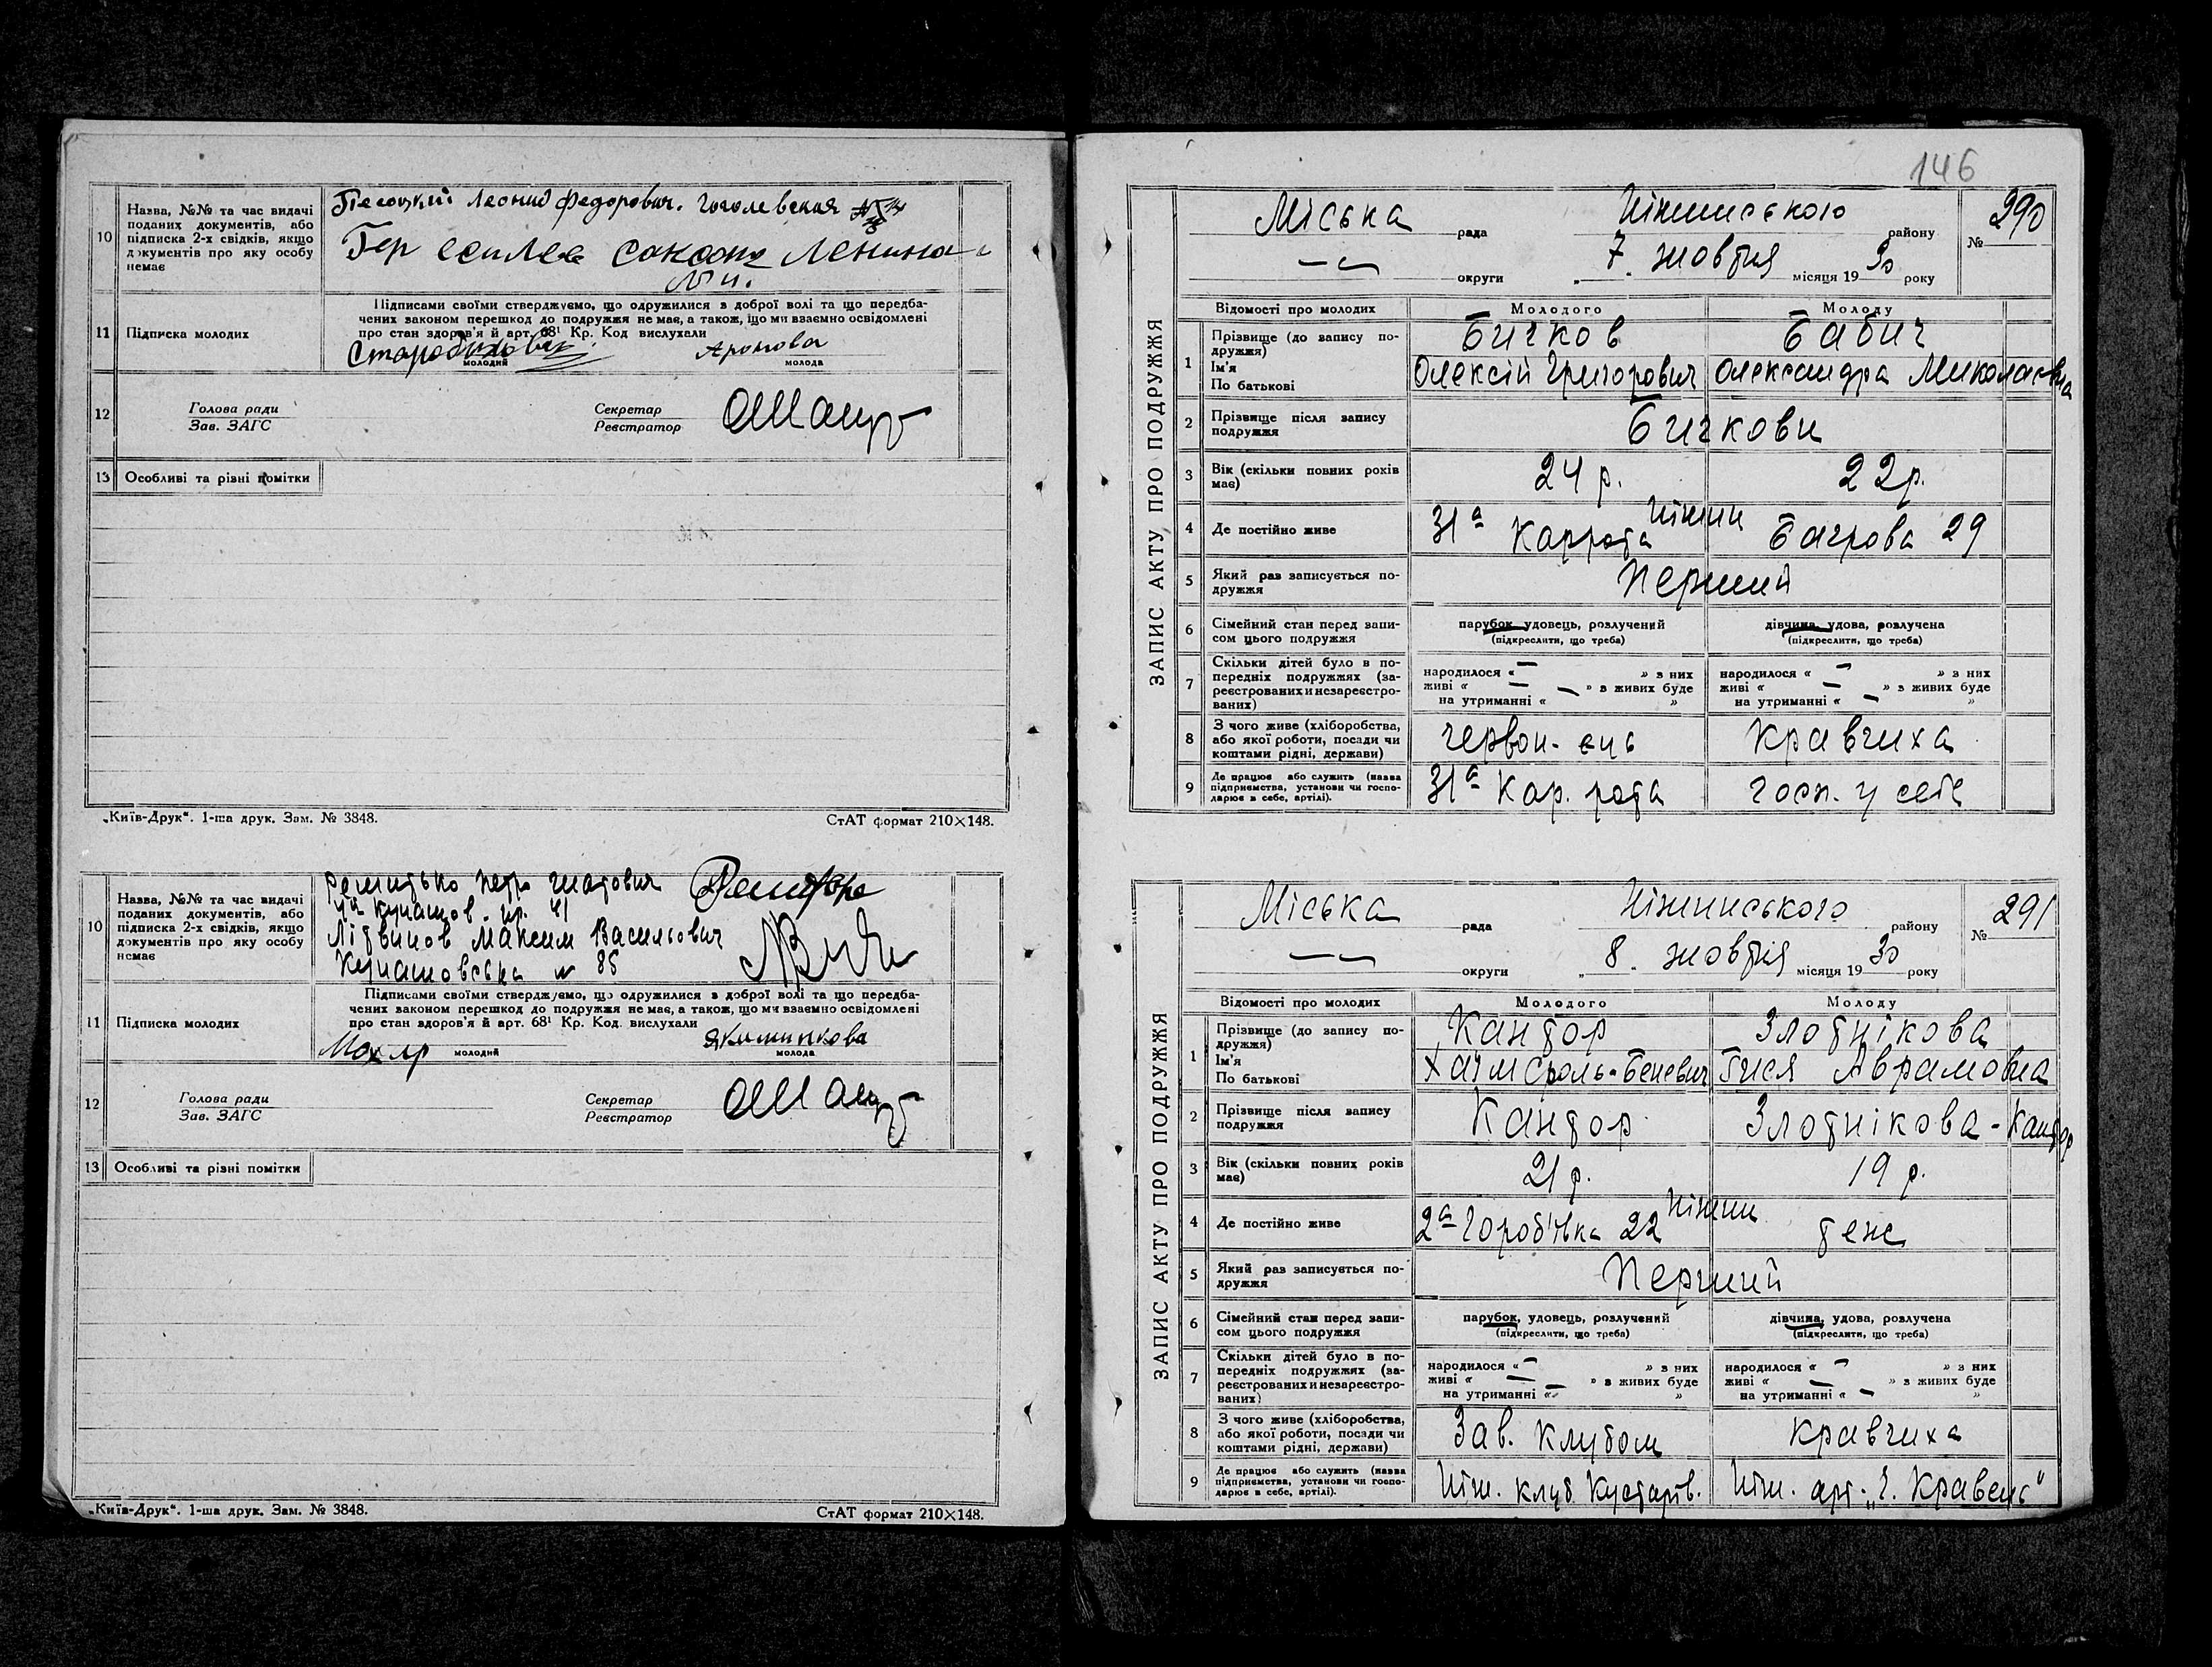 10
Назва, №№ та час видачі
поданих документів, або
підписка 2-х свідків, якщо
документів про яку особу
немає
Леонид Федорович. Гоголевская
Ленина
11
Підписка молодих
Підписами своїми стверджуємо, що одружилися з доброї волі та що передба-
чених законом перешкод до подружжя не має, а також, що ми взаємно освідомлені
про стан здоров'я й арт. 68¹ Кр. Код вислухали
Аронова
молодий
молода
12
Голова ради
Зав. ЗАГС
Секретар
Реєстратор
13
Особливі та різні помітки
„Київ-Друк“. 1-ша друк. Зам. № 3848.
СтАТ формат 210×148.
10
Назва, №№ та час видачі
поданих документів, або
підписка 2-х свідків, якщо
документів про яку особу
немає
Петро Гнатович
Літвинов Максим Васильович
Кунашовська № 85
11
Підписка молодих
Підписами своїми стверджуємо, що одружилися з доброї волі та що передба-
чених законом перешкод до подружжя не має, а також, що ми взаємно освідомлені
про стан здоров'я й арт. 68¹ Кр. Код. вислухали
молодий
молода
12
Голова ради
Зав. ЗАГС
Секретар
Реєстратор
13
Особливі та різні помітки
„Київ-Друк“. 1-ша друк. Зам. № 3848.
СтАТ формат 210×148.
146
ЗАПИС АКТУ ПРО ПОДРУЖЖЯ
Міська рада Ніжинського району № 290
округи „7„ жовтня місяця 1930 року
Відомості про молодих
Молодого
Молоду
1
Прізвище (до запису по-
дружжя)
Ім'я
По батькові
Бичков
Олексій Григорович
Бабич
Олександра Миколаєвна
2
Прізвище після запису
подружжя
Бичкови
3
Вік (скільки повних років
має)
24 р.
22 р.
4
Де постійно живе
Ніжин
31а Каррота
Багрова 29
5
Який раз записується по-
дружжя
Перший
6
Сімейний стан перед запи-
сом цього подружжя
парубок, удовець, розлучений
(підкреслити, що треба)
дівчина, удова, розлучена
(підкреслити, що треба)
7
Скільки дітей було в по-
передніх подружжях (за-
реєстрованих и незареєстро-
ваних)
народилося « — » з них
живі « — » з живих буде
на утриманні « — »
народилося « — » з них
живі « — » з живих буде
на утриманні « — »
8
З чого живе (хліборобства,
або якої роботи, посади чи
коштами рідні, держави)
червон-ець
Кравчиха
9
Де працює або служить (назва
підприємства, установи чи госпо-
дарює в себе, артілі).
31а Кар. рота
госп. у себе
ЗАПИС АКТУ ПРО ПОДРУЖЖЯ
Міська рада Ніжинського району № 291
округи „8„ жовтня місяця 1930 року
Відомості про молодих
Молодого
Молоду
1
Прізвище (до запису по-
дружжя)
Ім'я
По батькові
Кантор
Хаїм Сроль-Беневич
Злотнікова
Гися Аврамовна
2
Прізвище після запису
подружжя
Кантор
Злотнікова-Кантор
3
Вік (скільки повних років
має)
21 р.
19 р.
4
Де постійно живе
Ніжин
2а Горобівка 22
теж
5
Який раз записується по-
дружжя
Перший
6
Сімейний стан перед запи-
сом цього подружжя
парубок, удовець, розлучений
(підкреслити, що треба)
дівчина, удова, розлучена
(підкреслити, що треба)
7
Скільки дітей було в по-
передніх подружжях (за-
реєстрованих и незареєстро-
ваних)
народилося « — » з них
живі « — » з живих буде
на утриманні « — »
народилося « — » з них
живі « — » з живих буде
на утриманні « — »
8
З чого живе (хліборобства,
або якої роботи, посади чи
коштами рідні, держави)
Зав. клубом
Кравчиха
9
Де працює або служить (назва
підприємства, установи чи госпо-
дарює в себе, артілі).
Ніж. клуб Кустарів.
Ніж. арт. „Ч. Кравець“